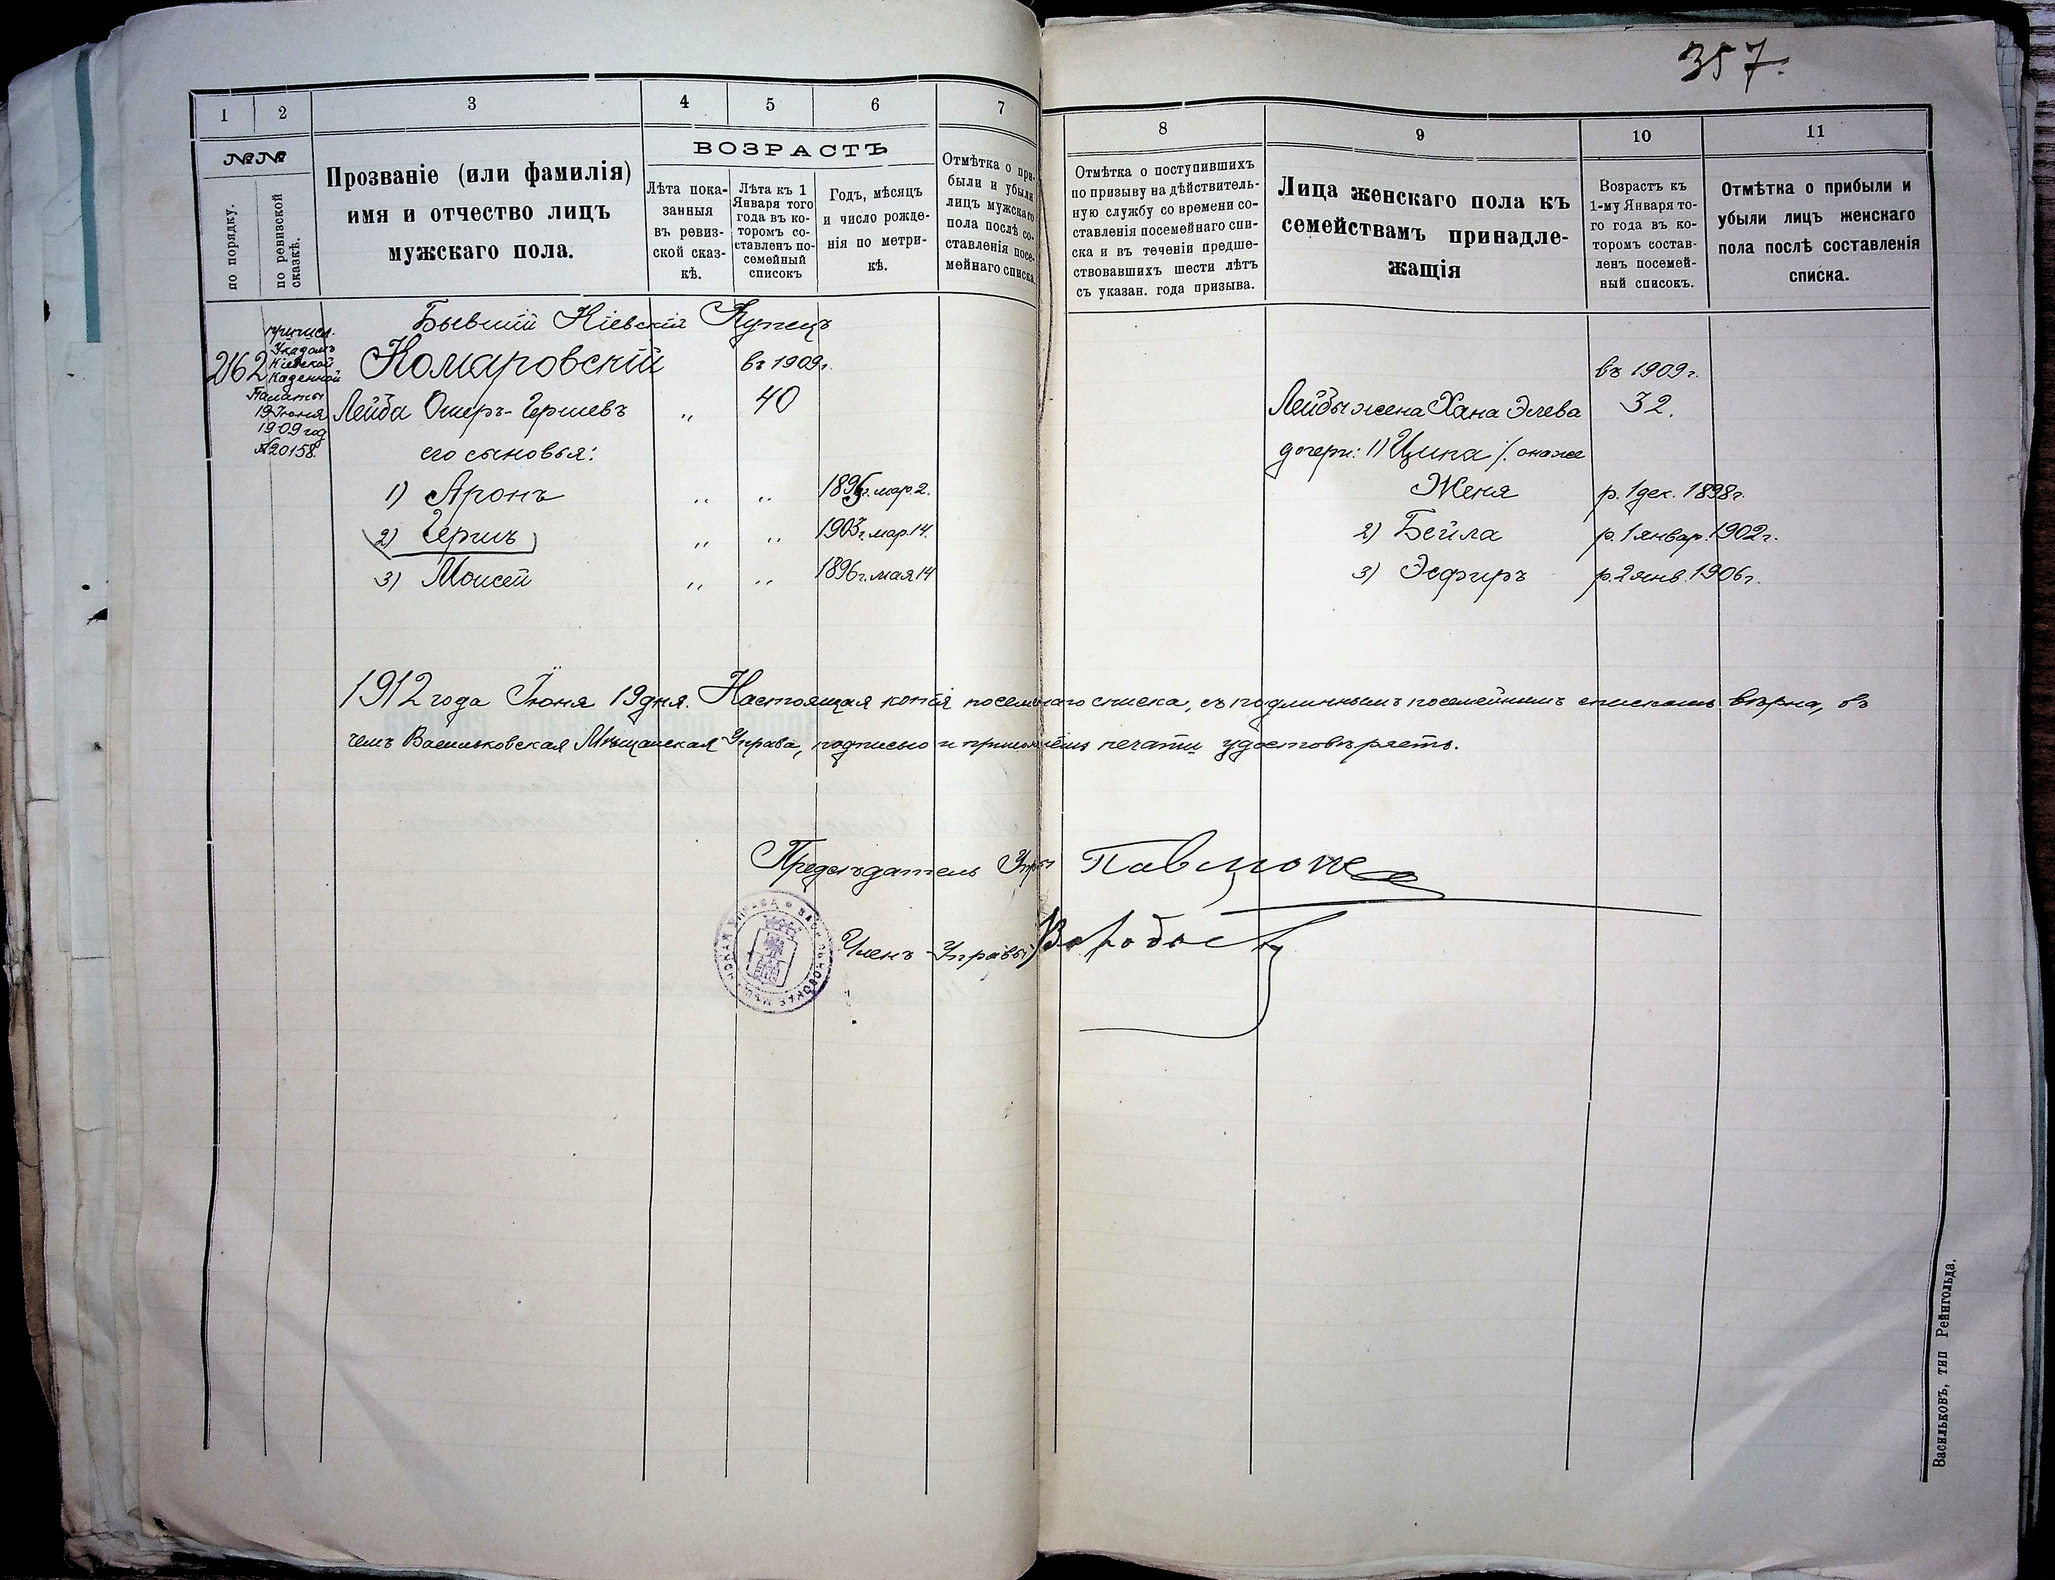 357.
1 2 3 4 5 6 7
8 9 10 11
№№
по порядку.
по ревизской сказкѣ.
Прозваніе (или фамилія)
имя и отчество лицъ
мужскаго пола.
ВОЗРАСТЪ
Лѣта пока-
занныя
въ ревиз-
ской сказ-
кѣ.
Лѣта къ 1
Января того
года въ ко-
торомъ со-
ставленъ по-
семейный
списокъ
Годъ, мѣсяцъ
и число рожде-
нія по метри-
кѣ.
Отмѣтка о при-
были и убыли
лицъ мужскаго
пола послѣ со-
ставленія посе-
мейнаго списка
Отмѣтка о поступившихъ
по призыву на дѣйствитель-
ную службу со времени со-
ставленія посемейнаго спи-
ска и въ теченіи предше-
ствовавшихъ шести лѣтъ
съ указан. года призыва.
Лица женскаго пола къ
семействамъ принадле-
жащія
Возрастъ къ
1-му Января то-
го года въ ко-
торомъ состав-
ленъ посемей-
ный списокъ.
Отмѣтка о прибыли и
убыли лицъ женскаго
пола послѣ составленія
списка.
Бывшій Кіевскій Купецъ
262
причисл.
Указомъ
Кіевской
Казенной
Палаты
19 Іюня
1909 год
№20158.
Комаровскій въ 1909г.
Лейба Ошеръ-Гершевъ „ 40
его сыновья:
1) Аронъ „ „ 1895г. мар. 2.
2) Гершъ „ „ 1903г. мар. 14.
3) Моисей „ „ 1896г. мая 14
въ 1909г.
Лейбы жена Хана Элева 32.
дочери: 1) Ципа /. она же
Женя р. 1 дек. 1898г.
2) Бейла р. 1 январ. 1902г.
3) Эсфиръ р. 2 янв. 1906г.
1912 года Іюня 19 дня. Настоящая копія посемейнаго списка, съ подлиннымъ посемейнымъ спискомъ вѣрна, въ
чемъ Васильковская Мѣщанская Управа, подписью и приложеніемъ печати удостовѣряетъ.
Предсѣдатель Упры
Членъ Управы
ВАСИЛЬКОВСКАЯ МѢЩАНСКАЯ УПРАВА
Васильковъ, тип Рейнгольда.